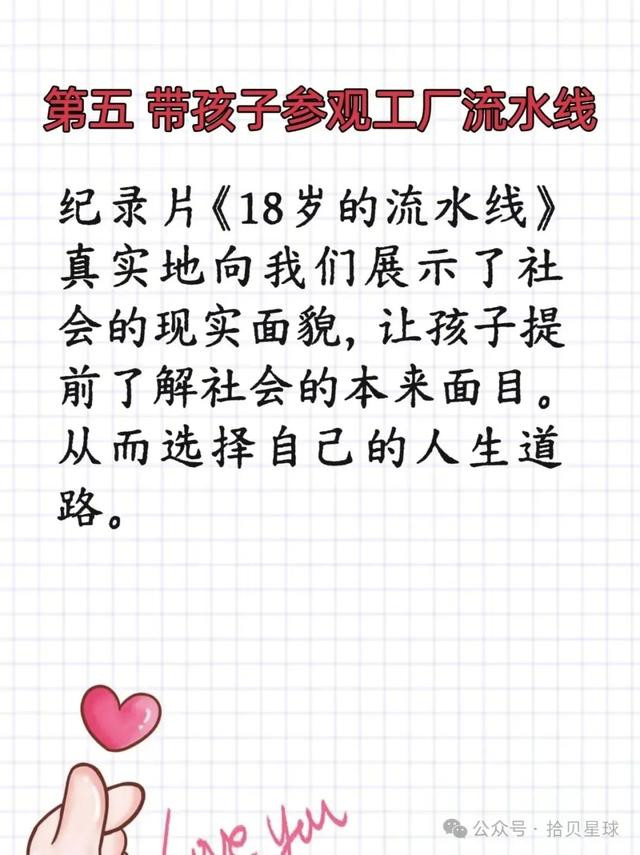 第五 带孩子参观工厂流水线
纪录片《18岁的流水线》
真实地向我们展示了社
会的现实面貌，让孩子提
前了解社会的本来面目。
从而选择自己的人生道
路。
Love You
公众号·拾贝星球